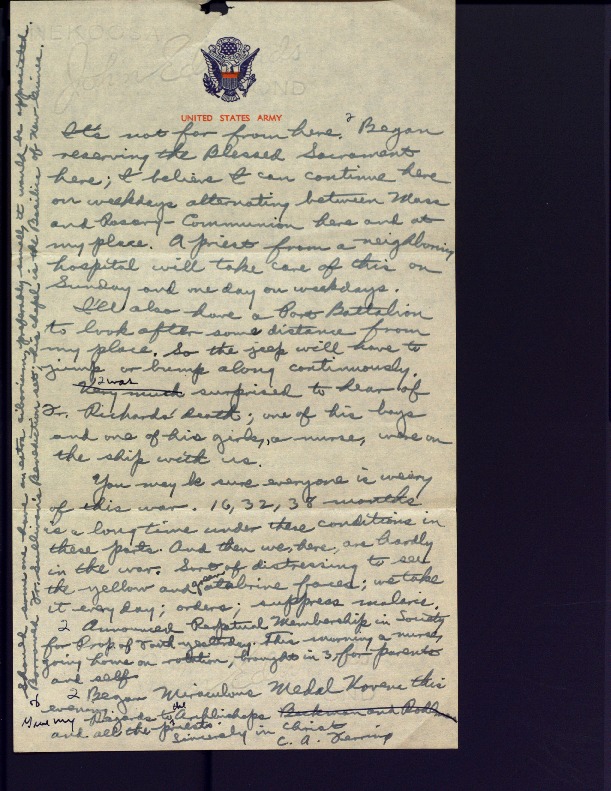 UNITED STATES ARMY
It's not far from here. I Began
reserving the Blessed Sacrament
here; I believe I can continue here
on weekdays alternating between Mass
and Rosary - Communion here and at
my place. A priest from a neighboring
hospital will take care of this on
Sunday and one day on weekdays.
I'll also have a Port Battalion
to look after some distance from
my place. So the jeep will have to
jump or bump along continuously.
I was
Very much surprised to hear of
Fr. Richards death; one of his boys
and one of his girls, a nurse, were on
the ship with us.
You may be sure everyone is weary
of this war. 16, 32, 38 months
is a long time under these conditions in
these parts. And then we, here, are hardly
in the war. Sort of distressing to see
the yellow and green atabrine faces; we take
it every day; orders; suppress malaria.
I Announced Perpetual Membership in Society
for Prop of Faith yesterday. This morning a nurse,
going home on rotation, brought in 3, for parents
and self.
I Began Miraculous Medal Novena this
evening.
Give my Regards to the Archbishops Beckman and
and all the priests
Sincerely in Christ
C. A.
Should some one have an extra ciborium, preferably small, it would be appreciated.
I borrowed Fr. Sullivan's Benediction set; his chapel is the Basilica of New Guinea.